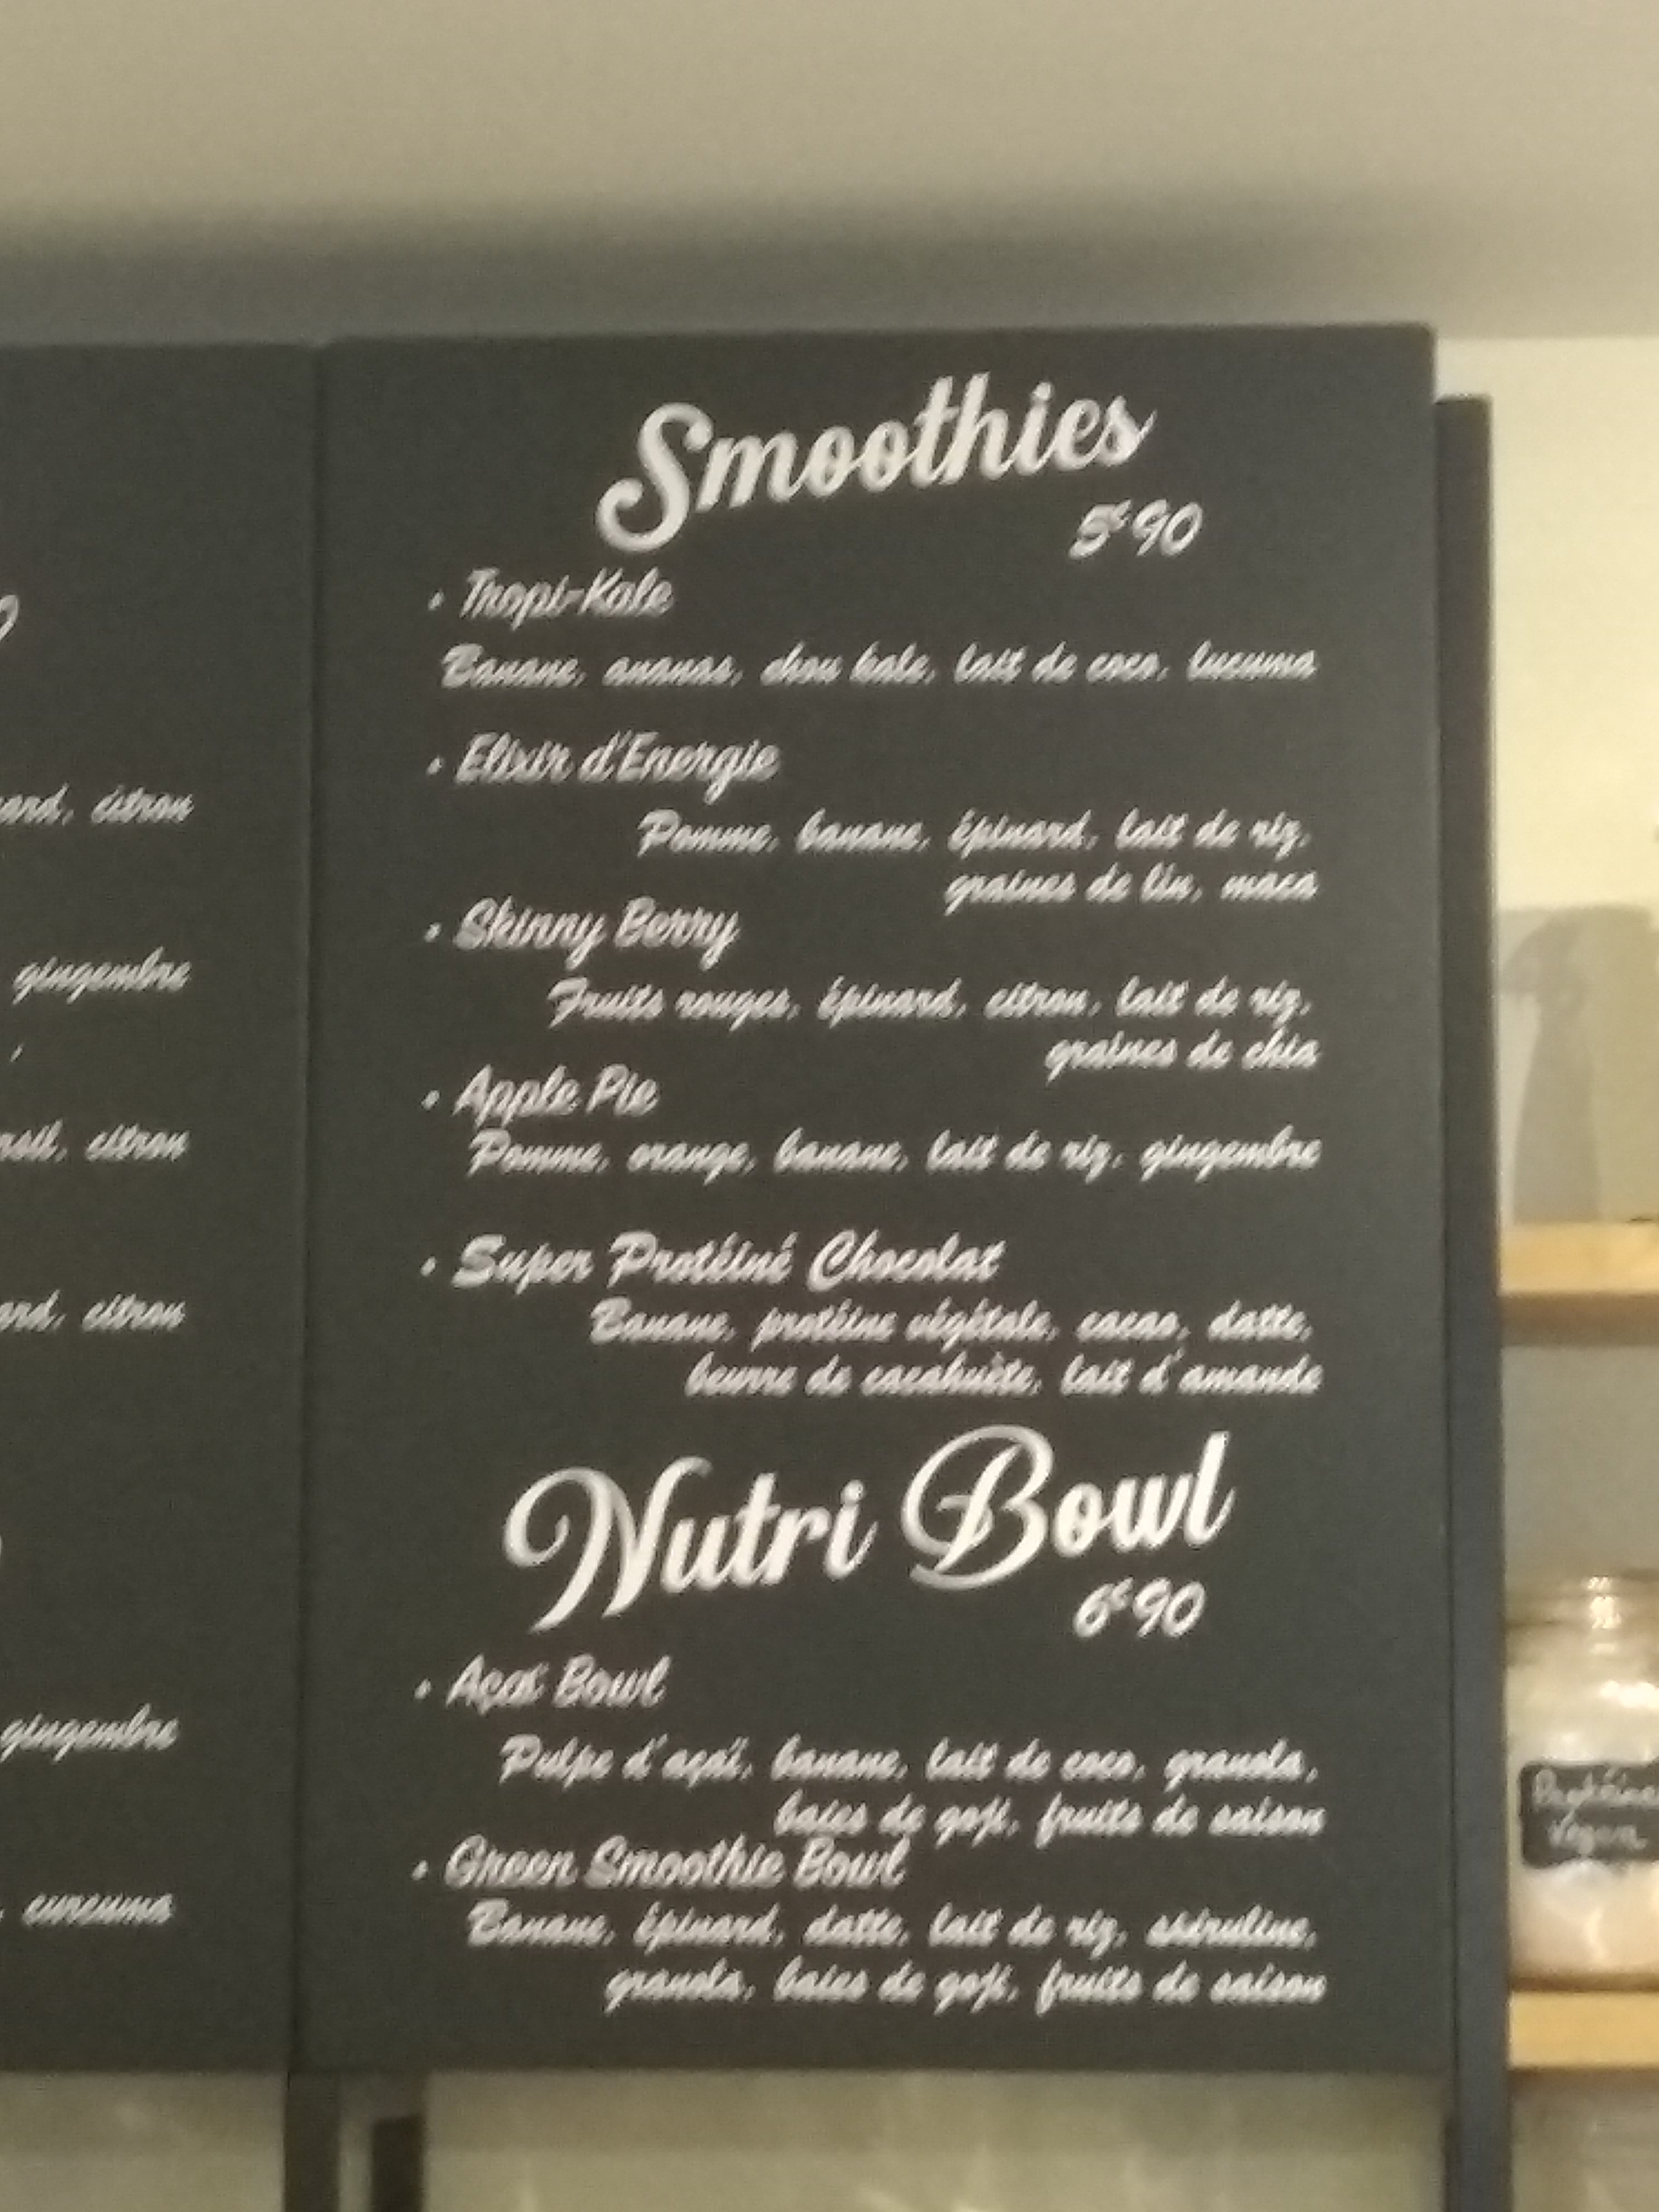 ard, citron
gingembre
rsil, citron
ard, citron
gingembre
, curcuma
Smoothies
5€90
• Tropi-Kale
Banane, ananas, chou kale, lait de coco, lucuma
• Elixir d'Energie
Pomme, banane, épinard, lait de riz,
graines de lin, maca
• Skinny Berry
Fruits rouges, épinard, citron, lait de riz,
graines de chia
• Apple Pie
Pomme, orange, banane, lait de riz, gingembre
• Super Protéiné Chocolat
Banane, protéine végétale, cacao, datte,
beurre de cacahuète, lait d'amande
Nutri Bowl
6€90
• Açaï Bowl
Pulpe d'açaï, banane, lait de coco, granola,
baies de goji, fruits de saison
• Green Smoothie Bowl
Banane, épinard, datte, lait de riz, spiruline,
granola, baies de goji, fruits de saison
Protéine
Végan